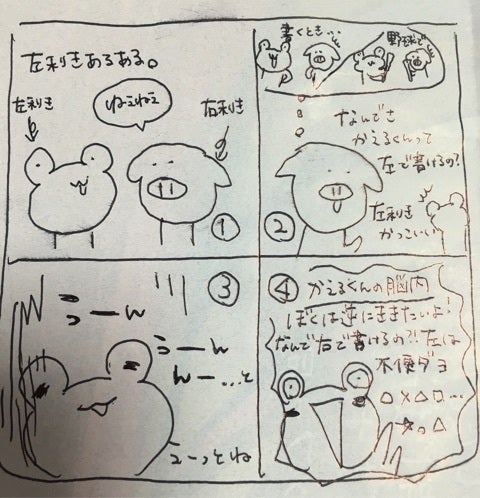 左利きあるある。
左利き
ねぇねぇ
右利き
①
書くとき…
野球で
なんでさ
かえるくんって
左で書けるの?
左利き
かっこいい
②
③
うーん
うーん
んー…と
えーっとね
④
かえるくんの脳内
ぼくは逆にききたいよ!
なんで右で書けるの?!左は
不便ダヨ
△×△□…
☆。△